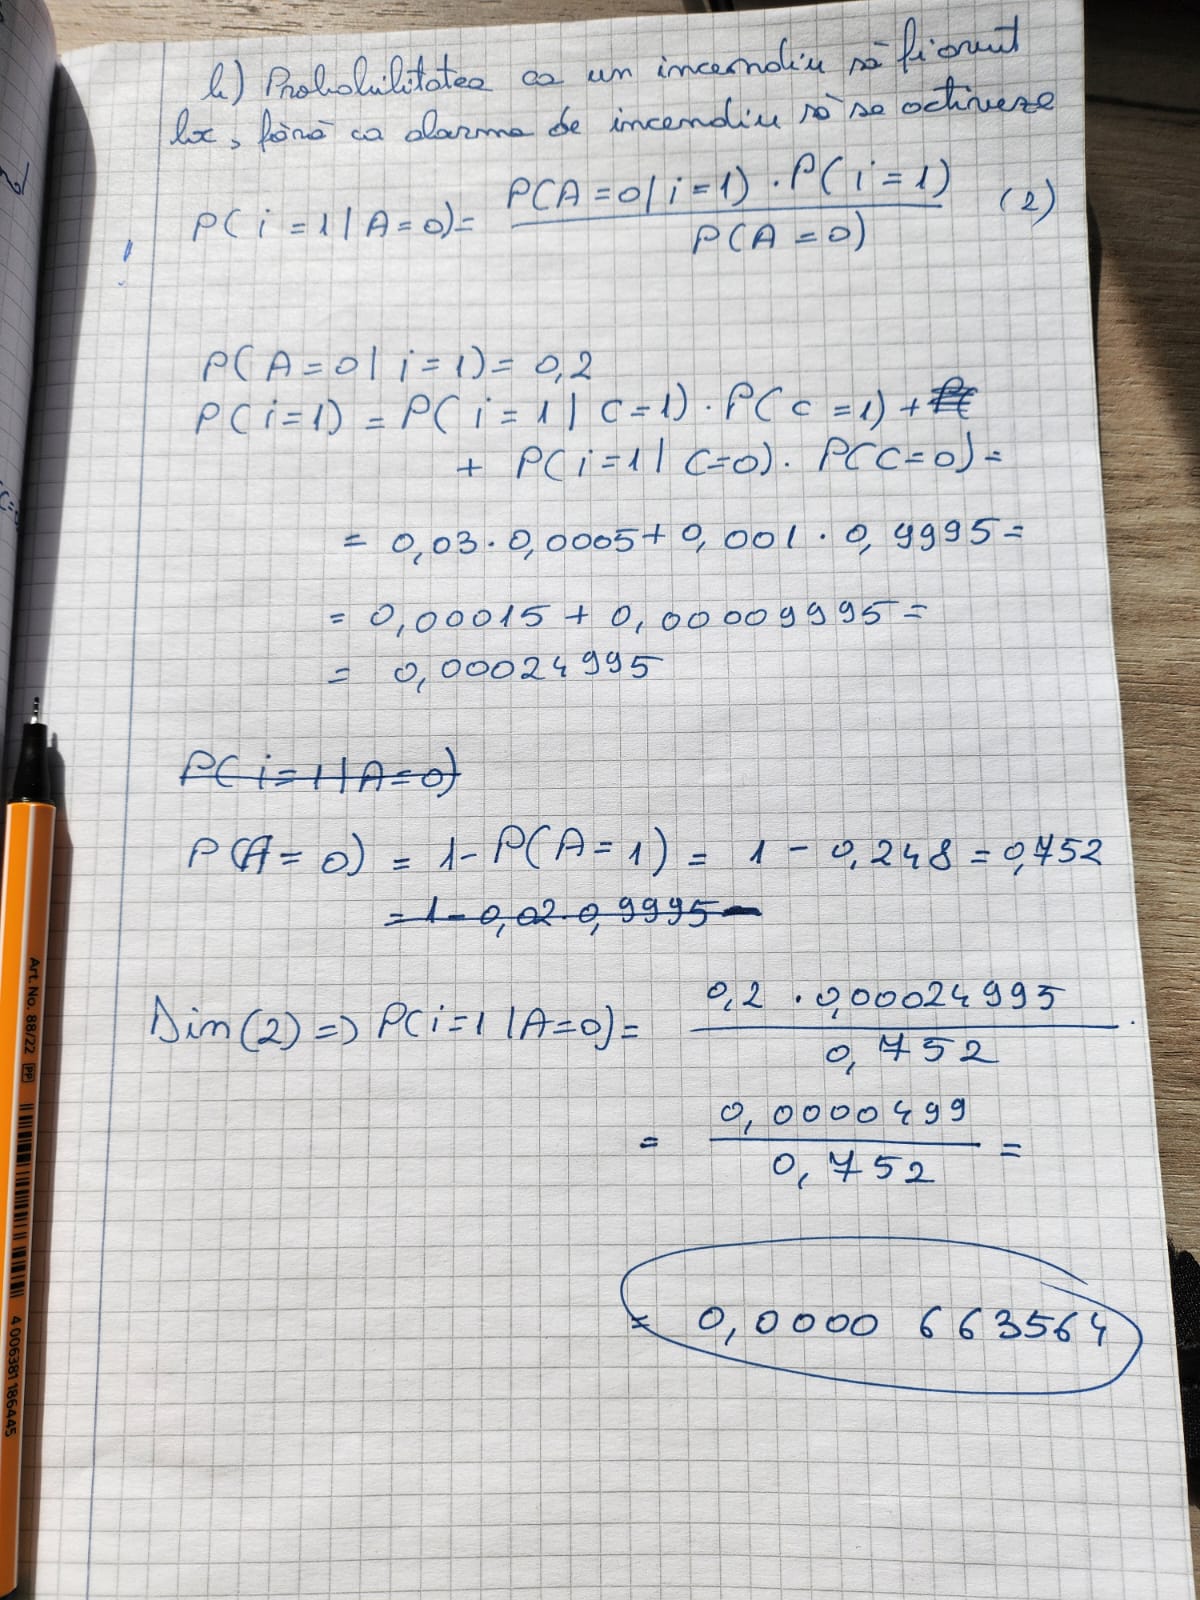 b) Probabilitatea ca un incendiu să fi avut
loc, fără ca alarma de incendiu să se activeze
P(i=1|A=0)= P(A=0|i=1) · P(i=1) / P(A=0) (2)
P(A=0|i=1)= 0,2
P(i=1) = P(i=1|C=1) · P(C=1) +
+ P(i=1|C=0) · P(C=0) =
= 0,03 · 0,0005 + 0,001 · 0,9995 =
= 0,00015 + 0,00009995 =
= 0,00024995
P(i=1|A=0)
P(A=0) = 1 - P(A=1) = 1 - 0,248 = 0,752
= 1 - 0,02 · 0,9995 -
Din (2) => P(i=1|A=0) = 0,2 · 0,00024995 / 0,752
= 0,0000499 / 0,752 =
= 0,0000663564
Art. No. 88/22 PP
4 006381 186445